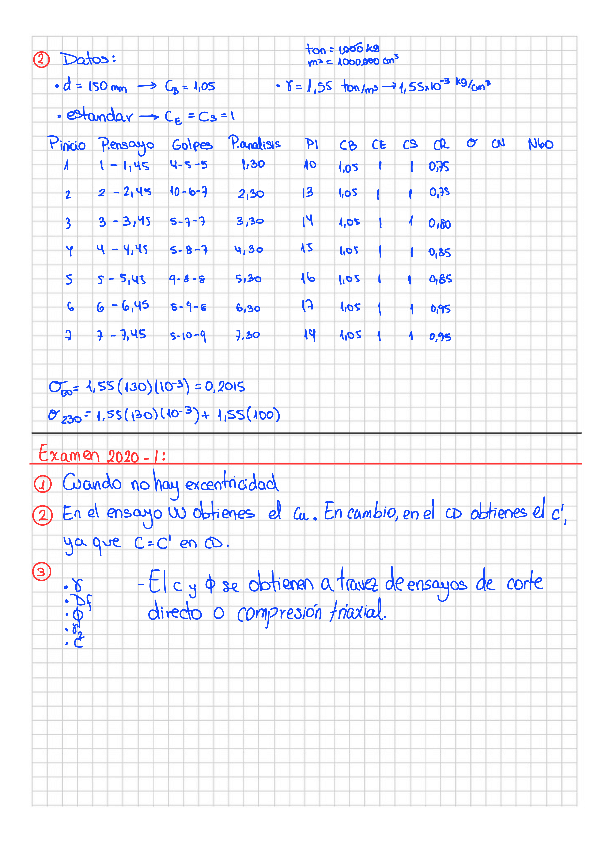 ton = 1000 kg
② Datos: m³ = 1000.000 cm³
• d = 150 mm → C_B = 1,05 • γ = 1,55 ton/m³ → 1,55x10⁻³ kg/cm³
• estandar → C_E = C_S = 1
P.inicio P.ensayo Golpes P.analisis PI CB CE CS CR σ CN N60
1 1 - 1,45 4-5-5 1,30 10 1,05 1 1 0,75
2 2 - 2,45 10-6-7 2,30 13 1,05 1 1 0,75
3 3 - 3,45 5-7-7 3,30 14 1,05 1 1 0,80
4 4 - 4,45 5-8-7 4,30 15 1,05 1 1 0,85
5 5 - 5,45 9-8-8 5,30 16 1,05 1 1 0,85
6 6 - 6,45 8-9-8 6,30 17 1,05 1 1 0,95
7 7 - 7,45 5-10-9 7,30 19 1,05 1 1 0,95
= 1,55 (130)(10⁻³) = 0,2015
σ₂₃₀ = 1,55 (130)(10⁻³) + 1,55 (100)
Examen 2020-1:
① Cuando no hay excentricidad
② En el ensayo UU obtienes el Cu. En cambio, en el CD obtienes el c',
ya que C = C' en CD.
③ • γ - El c y φ se obtienen a travez de ensayos de corte
• Df
• φ directo o compresión triaxial.
• γ₂
• c